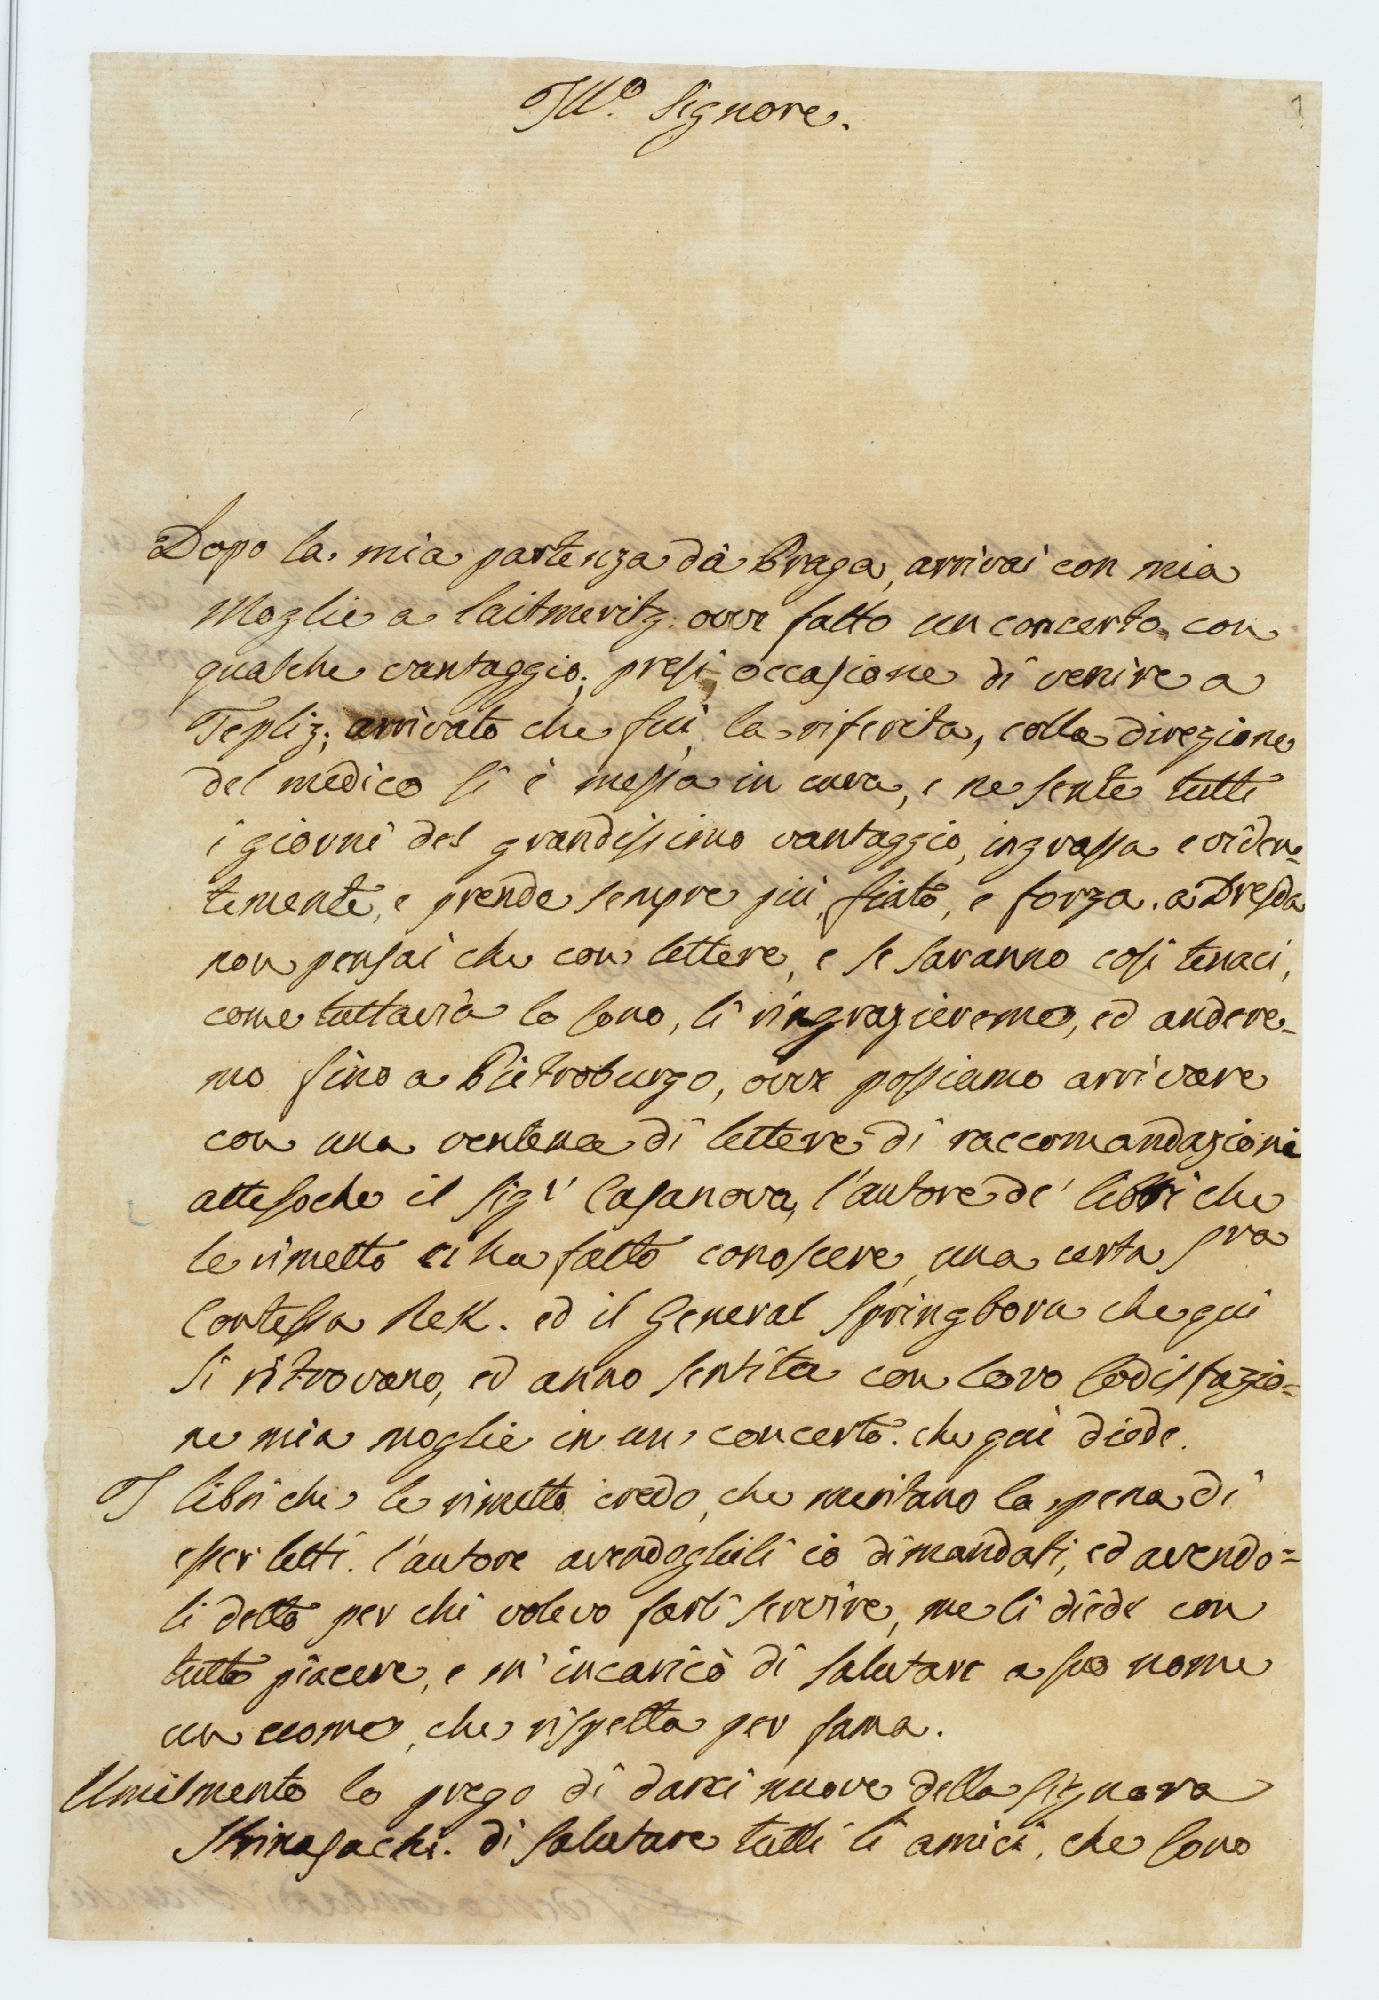 Ill.º Signore.
1
Dopo la mia partenza dà Praga, arrivai con mia
Moglie a Laitmeritz. ove fatto un concerto con
qualche vantaggio; presi occasione di venire a
Tepliz; arrivato che fui, la riferita, colla direzione
del medico si è messa in cura, e ne sente tutti
i giorni del grandissimo vantaggio, ingrassa eviden=
temente, e prende sempre più fiato, e forza. a Dresda
non pensai che con lettere, e se saranno così tenaci,
come tuttavia lo sono, li ringrazieremo, ed andere=
mo fino a Pietroburgo, ove possiamo arrivare
con una ventena di lettere di raccomandazioni
attesoche il Sigr Casanova, l'autore de' libri che
le rimetto ci ha fatto conoscere, una certa Sra
Contessa Rek. ed il General Springborn che qui
si ritrovano, ed anno sentita con loro sodisfazio=
ne mia moglie in un concerto. che quì diede.
I libri che le rimetto credo, che meritano la pena di
esser letti. l'autore avendoglieli io dimandati, ed avendo=
li detto per chi volevo farli servire, me li diède con
tutto piacere, e m'incaricò di salutare a suo nome
un uomo, che rispetta per fama.
Umilmente lo prego di darci nuove della Signora
Strinasachi. di salutare tutti li amici, che sono